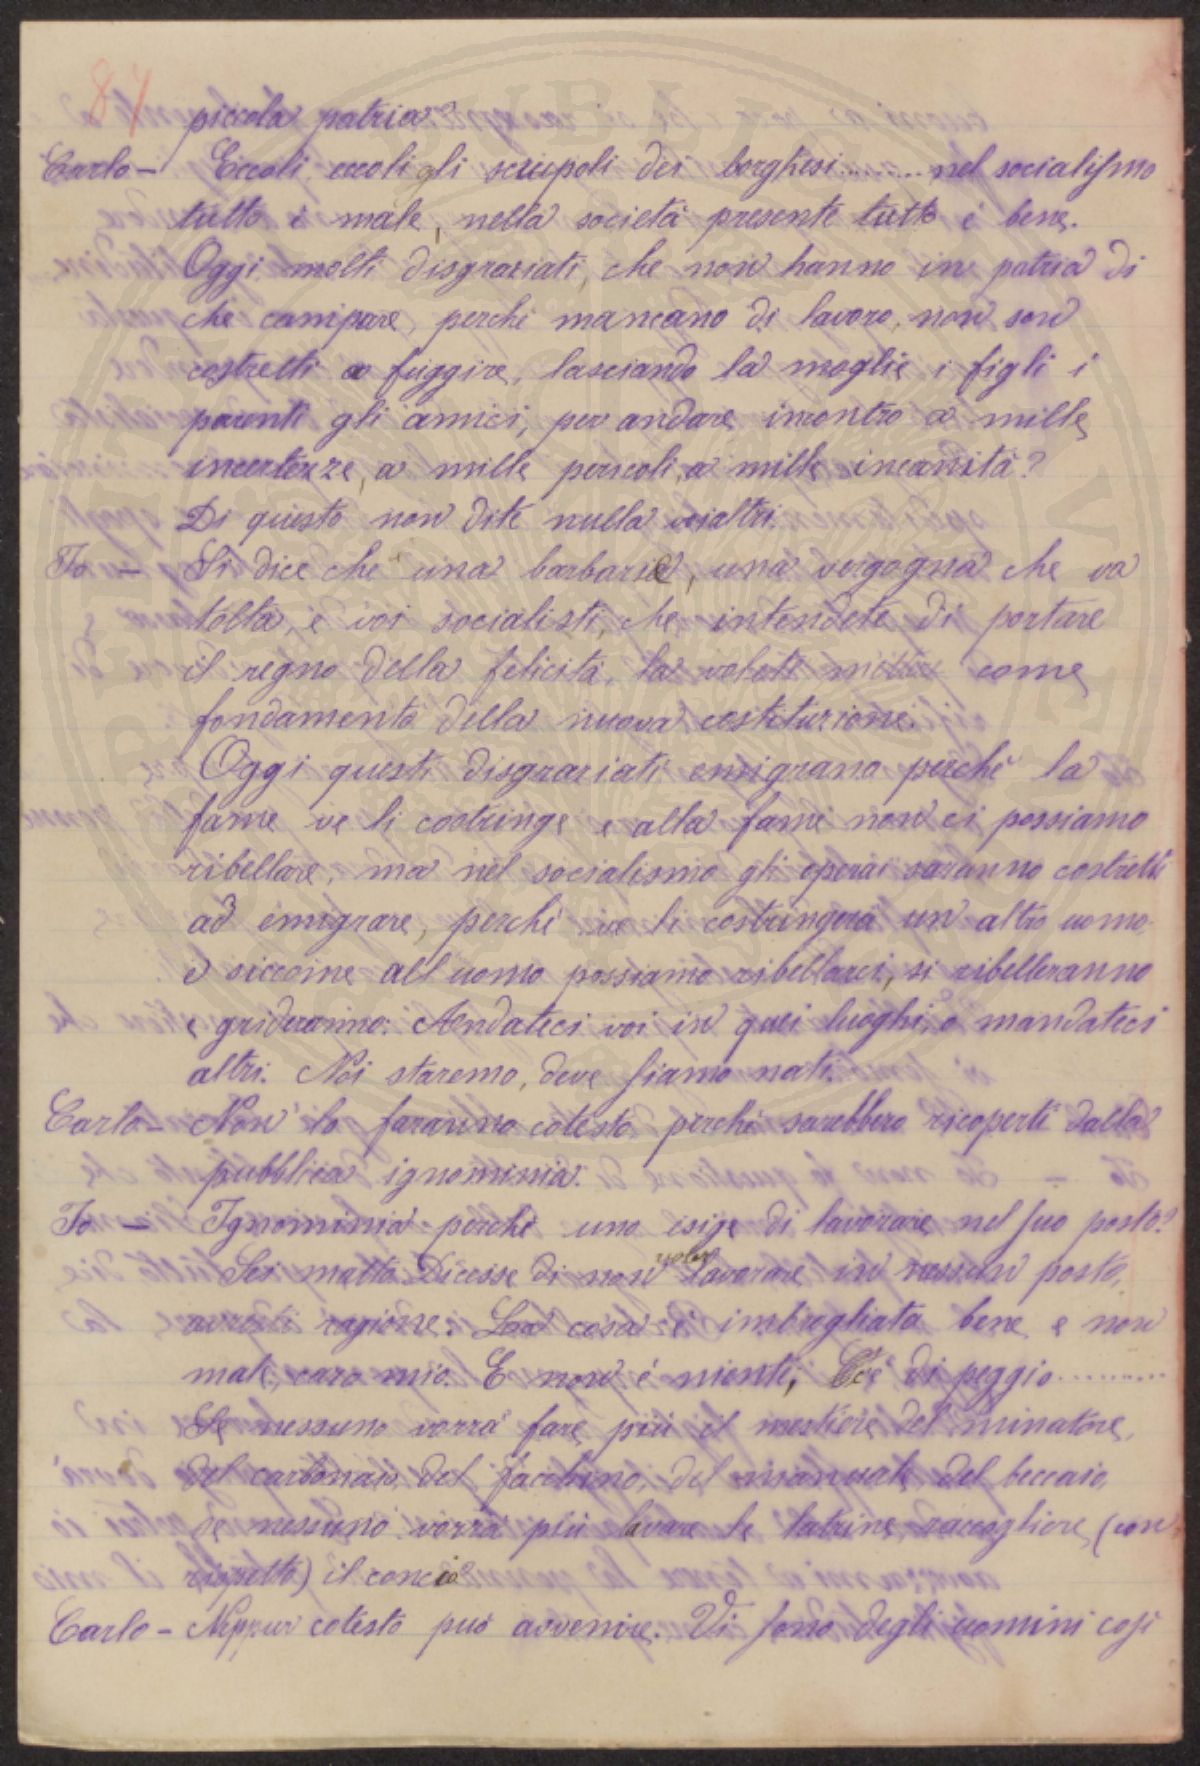 84
piccola patria?
Carlo - Eccoli, eccoli gli scrupoli dei borghesi......... nel socialismo
tutto è male, nella società presente tutto è bene.
Oggi molti disgraziati, che non hanno in patria di
che campare, perchè mancano di lavoro, non son
costretti a fuggire, lasciando la moglie i figli i
parenti gli amici, per andare incontro a mille
incertezze, a mille pericoli, a mille incanità?
Di questo non dite nulla voialtri.
Io - Si dice che una barbarie, una vergogna che va
tolta, e voi socialisti, che intendete di portare
il regno della felicità, la volete mettere come
fondamento della nuova costituzione.
Oggi questi disgraziati emigrano perchè la
fame ve li costringe e alla fame non ci possiamo
ribellare, ma nel socialismo gli operai saranno costretti
ad emigrare, perchè ve li costringerà un altro uomo
e siccome all'uomo possiamo ribellarci, si ribelleranno
e grideranno: Andateci voi in quei luoghi, o mandateci
altri. Noi staremo, dove siamo nati.
Carlo - Non lo faranno cotesto perchè sarebbero ricoperti dalla
pubblica ignominia.
Io - Ignominia perchè uno esige di lavorare nel suo posto?
Sei matto. Dicesse di non voler lavorare in nessun posto,
avresti ragione. La cosa è imbrogliata bene e non
male, caro mio. E non è niente, C'è di peggio.........
Se nessuno vorrà fare più il mestiere del minatore,
del carbonaio, del facchino, del manuale del beccaio,
se nessuno vorrà più lavare le latrine, raccogliere, (con
rispetto) il concio?
Carlo - Neppur cotesto può avvenire. Vi sono degli uomini così